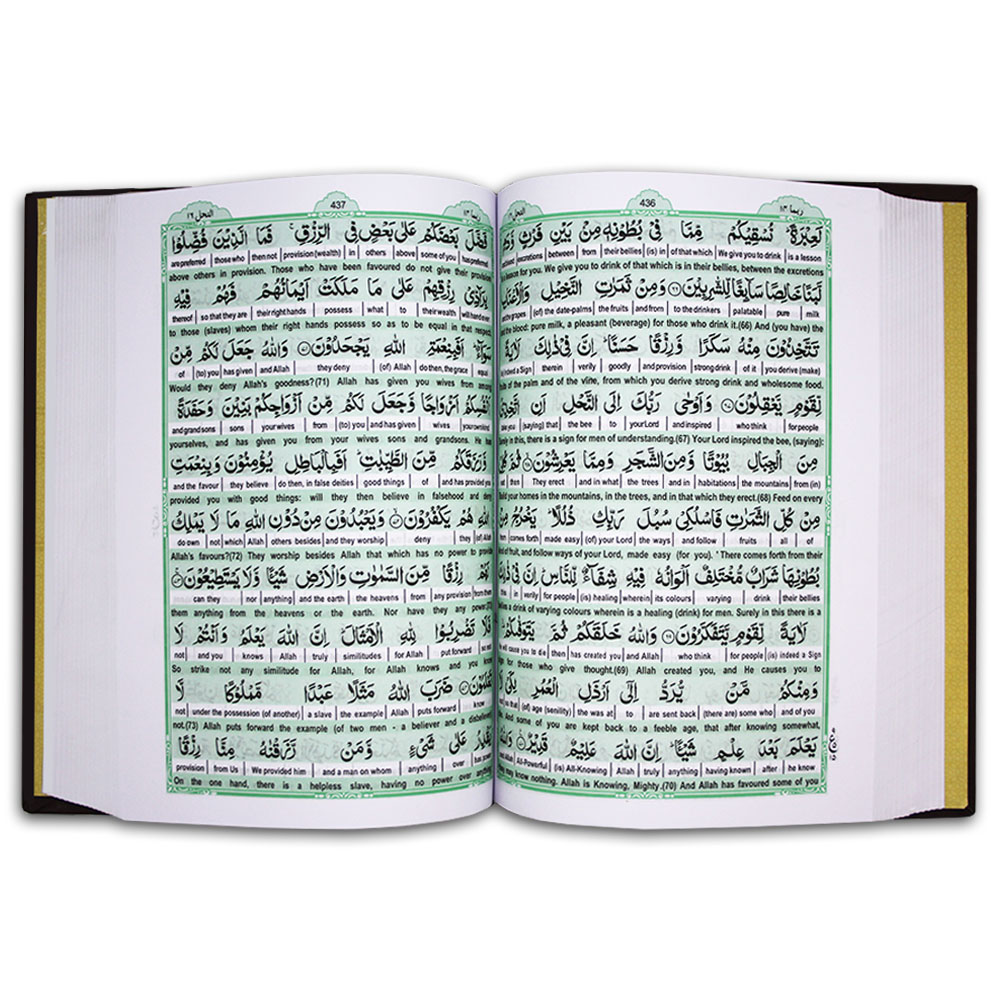 ربما ١٤
436
لَعِبْرَةً نُسْقِيكُم مِّمَّا فِي بُطُونِهِ مِنْ بَيْنِ فَرْثٍ وَّدَمٍ
excretions | between | from | their bellies | (is) in | of that which | We give you to drink | is a lesson
a lesson for you. We give you to drink of that which is in their bellies, between the excretions
لَّبَنًا خَالِصًا سَآئِغًا لِّلشّٰرِبِينَ ٦٦ وَمِنْ ثَمَرٰتِ النَّخِيلِ وَالْاَعْنَابِ
the grapes | (of) the date-palms | the fruits | and from | to the drinkers | palatable | pure | milk
and the blood: pure milk, a pleasant (beverage) for those who drink it.(66) And (you have) the
تَتَّخِذُونَ مِنْهُ سَكَرًا وَّرِزْقًا حَسَنًا اِنَّ فِي ذٰلِكَ لَاٰيَةً
indeed a Sign | therein | verily | goodly | and provision | strong drink | of it | you derive (make)
of the palm and of the vine, from which you derive strong drink and wholesome food.
لِّقَوْمٍ يَّعْقِلُونَ ٦٧ وَاَوْحٰى رَبُّكَ اِلَى النَّحْلِ اَنِ اتَّخِذِي
you | (saying) that | the bee | to | your Lord | and inspired | who think | for people
in this, there is a sign for men of understanding.(67) Your Lord inspired the bee, (saying):
مِنَ الْجِبَالِ بُيُوتًا وَّمِنَ الشَّجَرِ وَمِمَّا يَعْرِشُونَ ٦٨ ثُمَّ كُلِي
then | They erect | and in what | the trees | and in | habitations | the mountains | from (in)
Build your homes in the mountains, in the trees, and in that which they erect.(68) Feed on every
مِنْ كُلِّ الثَّمَرٰتِ فَاسْلُكِي سُبُلَ رَبِّكِ ذُلُلًا يَخْرُجُ مِنْ
comes forth | made easy | (of) your Lord | the ways | and follow | fruits | all | of
kind of fruit, and follow ways of your Lord, made easy (for you). " There comes forth from their
بُطُونِهَا شَرَابٌ مُّخْتَلِفٌ اَلْوَانُهٗ فِيهِ شِفَآءٌ لِّلنَّاسِ اِنَّ فِي ذٰلِكَ
in | verily | for people | (is) healing | wherein | its colours | varying | drink | their bellies
bellies a drink of varying colours wherein is a healing (drink) for men. Surely in this there is a
لَاٰيَةً لِّقَوْمٍ يَّتَفَكَّرُونَ ٦٩ وَاللّٰهُ خَلَقَكُمْ ثُمَّ يَتَوَفّٰىكُمْ
cause you to die | then | has created you | and Allah | who think | for people | (is) indeed a Sign
sign for those who give thought.(69) Allah created you, and He causes you to
وَمِنْكُمْ مَّنْ يُّرَدُّ اِلٰى اَرْذَلِ الْعُمُرِ لِكَيْ لَا
so that | (of) age (senility) | the was at | to | are sent back | (there are) some who | and of you
And some of you are kept back to a feeble age, that after knowing somewhat,
يَعْلَمَ بَعْدَ عِلْمٍ شَيْئًا اِنَّ اللّٰهَ عَلِيمٌ قَدِيرٌ ٧٠ وَاللّٰهُ
All-Powerful | (is) All-Knowing | Allah | truly | anything | having known | after | he know
may know nothing. Allah is Knowing, Mighty.(70) And Allah has favoured some of you
النحل ١٦
437
ربما ١٤
فَضَّلَ بَعْضَكُمْ عَلٰى بَعْضٍ فِي الرِّزْقِ فَمَا الَّذِينَ فُضِّلُوا
are preferred | those who | then not | provision (wealth) | in | others | above | some of you | has preferred
above others in provision. Those who have been favoured do not give their provision
بِرَآدِّي رِزْقِهِمْ عَلٰى مَا مَلَكَتْ اَيْمَانُهُمْ فَهُمْ فِيهِ
thereof | so that they are | their right hands | possess | what | to | their wealth | will hand over
to those (slaves) whom their right hands possess so as to be equal in that respect.
سَوَآءٌ اَفَبِنِعْمَةِ اللّٰهِ يَجْحَدُونَ ٧١ وَاللّٰهُ جَعَلَ لَكُم مِّنْ
of | (to) you | has given | and Allah | they deny | (of) Allah | do then, the grace | equal
Would they deny Allah's goodness?(71) Allah has given you wives from among
اَنْفُسِكُمْ اَزْوَاجًا وَّجَعَلَ لَكُم مِّنْ اَزْوَاجِكُم بَنِينَ وَحَفَدَةً
and grand sons | sons | your wives | from | (to) you | and has given | wives | your own kind
yourselves, and has given you from your wives sons and grandsons. He has
وَّرَزَقَكُم مِّنَ الطَّيِّبٰتِ اَفَبِالْبَاطِلِ يُؤْمِنُونَ وَبِنِعْمَتِ
and the favour | they believe | do then, in false deities | good things | of | and has provided you
provided you with good things: will they then believe in falsehood and deny
اللّٰهِ هُمْ يَكْفُرُونَ ٧٢ وَيَعْبُدُونَ مِنْ دُونِ اللّٰهِ مَا لَا يَمْلِكُ
do own | not | which | Allah | others besides | and they worship | deny | they | of Allah
Allah's favours?(72) They worship besides Allah that which has no power to provide
لَهُمْ رِزْقًا مِّنَ السَّمٰوٰتِ وَالْاَرْضِ شَيْئًا وَّلَا يَسْتَطِيعُونَ ٧٣
can they | nor | anything | and the earth | the heavens | from | any provision | from them
them anything from the heavens or the earth. Nor have they any power.
فَلَا تَضْرِبُوا لِلّٰهِ الْاَمْثَالَ اِنَّ اللّٰهَ يَعْلَمُ وَاَنْتُمْ لَا
not | and you | knows | Allah | truly | similitudes | for Allah | put forward | so not
So strike not any similitude for Allah, for Allah knows and you know
تَعْلَمُونَ ٧٤ ضَرَبَ اللّٰهُ مَثَلًا عَبْدًا مَّمْلُوكًا لَّا
not | under the possession (of another) | a slave | the example | Allah | puts forward | know
not.(73) Allah puts forward the example (of two men - a believer and a disbeliever
يَقْدِرُ عَلٰى شَيْءٍ وَّمَنْ رَّزَقْنٰهُ مِنَّا رِزْقًا
provision | from Us | We provided him | and a man on whom | anything | over | has power
On the one hand, there is a helpless slave, having no power over anything